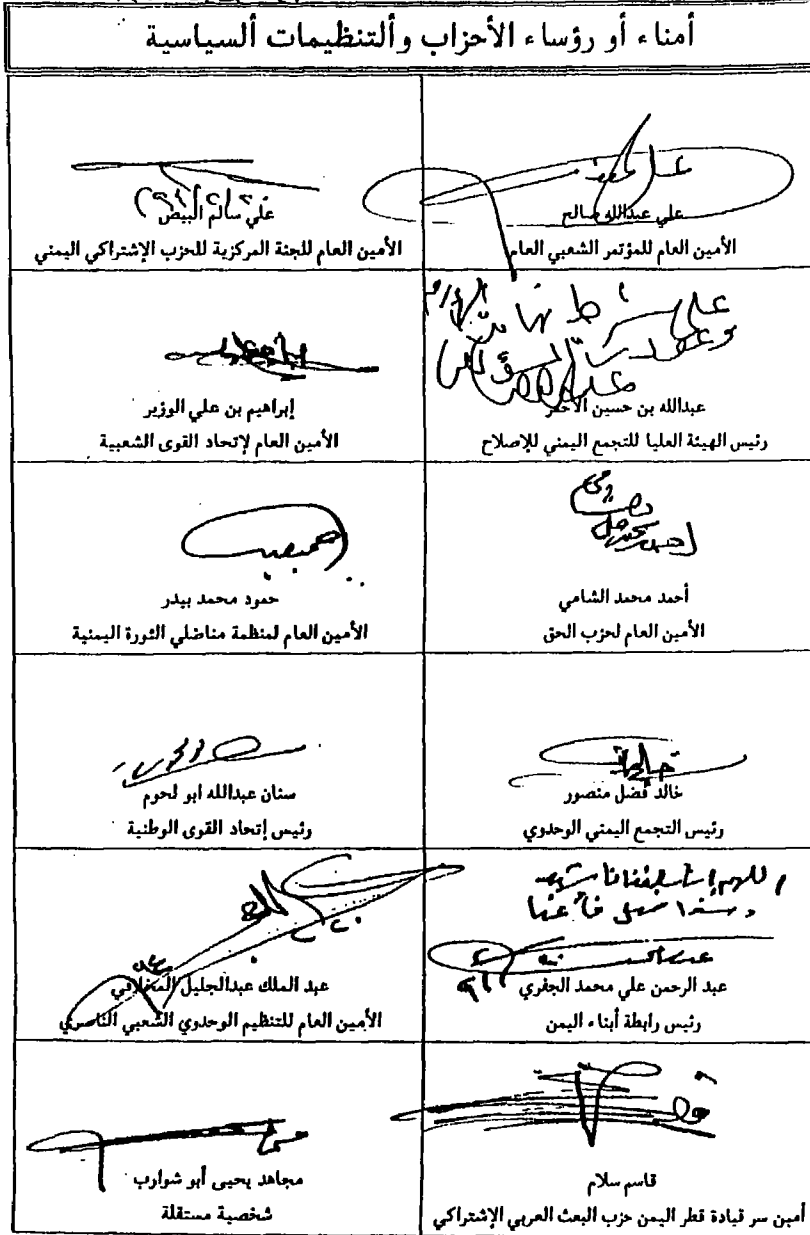 أمناء أو رؤساء الأحزاب وألتنظيمات ألسياسية
علي عبدالله صالح
الأمين العام للمؤتمر الشعبي العام
علي سالم البيض
الأمين العام للجنة المركزية للحزب الإشتراكي اليمني
عبدالله بن حسين الأحمر
رئيس الهيئة العليا للتجمع اليمني للإصلاح
إبراهيم بن علي الوزير
الأمين العام لإتحاد القوى الشعبية
أحمد محمد الشامي
الأمين العام لحزب الحق
حمود محمد بيدر
الأمين العام لمنظمة مناضلي الثورة اليمنية
خالد فضل منصور
رئيس التجمع اليمني الوحدوي
سنان عبدالله ابو لحوم
رئيس إتحاد القوى الوطنية
عبد الرحمن علي محمد الجفري
رئيس رابطة أبناء اليمن
عبد الملك عبدالجليل المخلافي
الأمين العام للتنظيم الوحدوي الشعبي الناصري
قاسم سلام
أمين سر قيادة قطر اليمن حزب البعث العربي الإشتراكي
مجاهد يحيى أبو شوارب
شخصية مستقلة